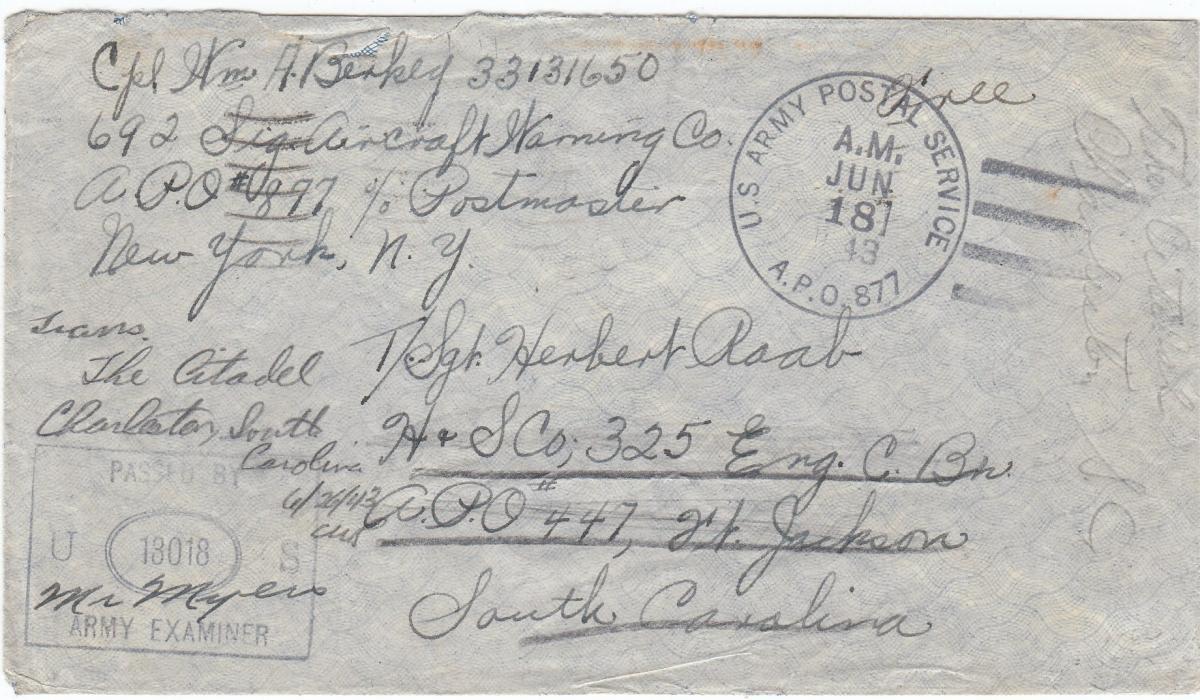 Cpl Wm A. Berkey 33131650
692 Sig. Aircraft Warning Co.
A.P.O #897 c/o Postmaster
New York, N.Y.
Free
U.S. ARMY POSTAL SERVICE
A.M.
JUN
18
43
A.P.O. 877
trans.
The Citadel
Charleston, South
Carolina
6/26/43
T/Sgt. Herbert Raab
H & S Co; 325 Eng. C. Bn.
A.P.O # 447, Ft. Jackson
South Carolina
PASSED BY
U 13018 S
Mr Myers
ARMY EXAMINER
The Citadel